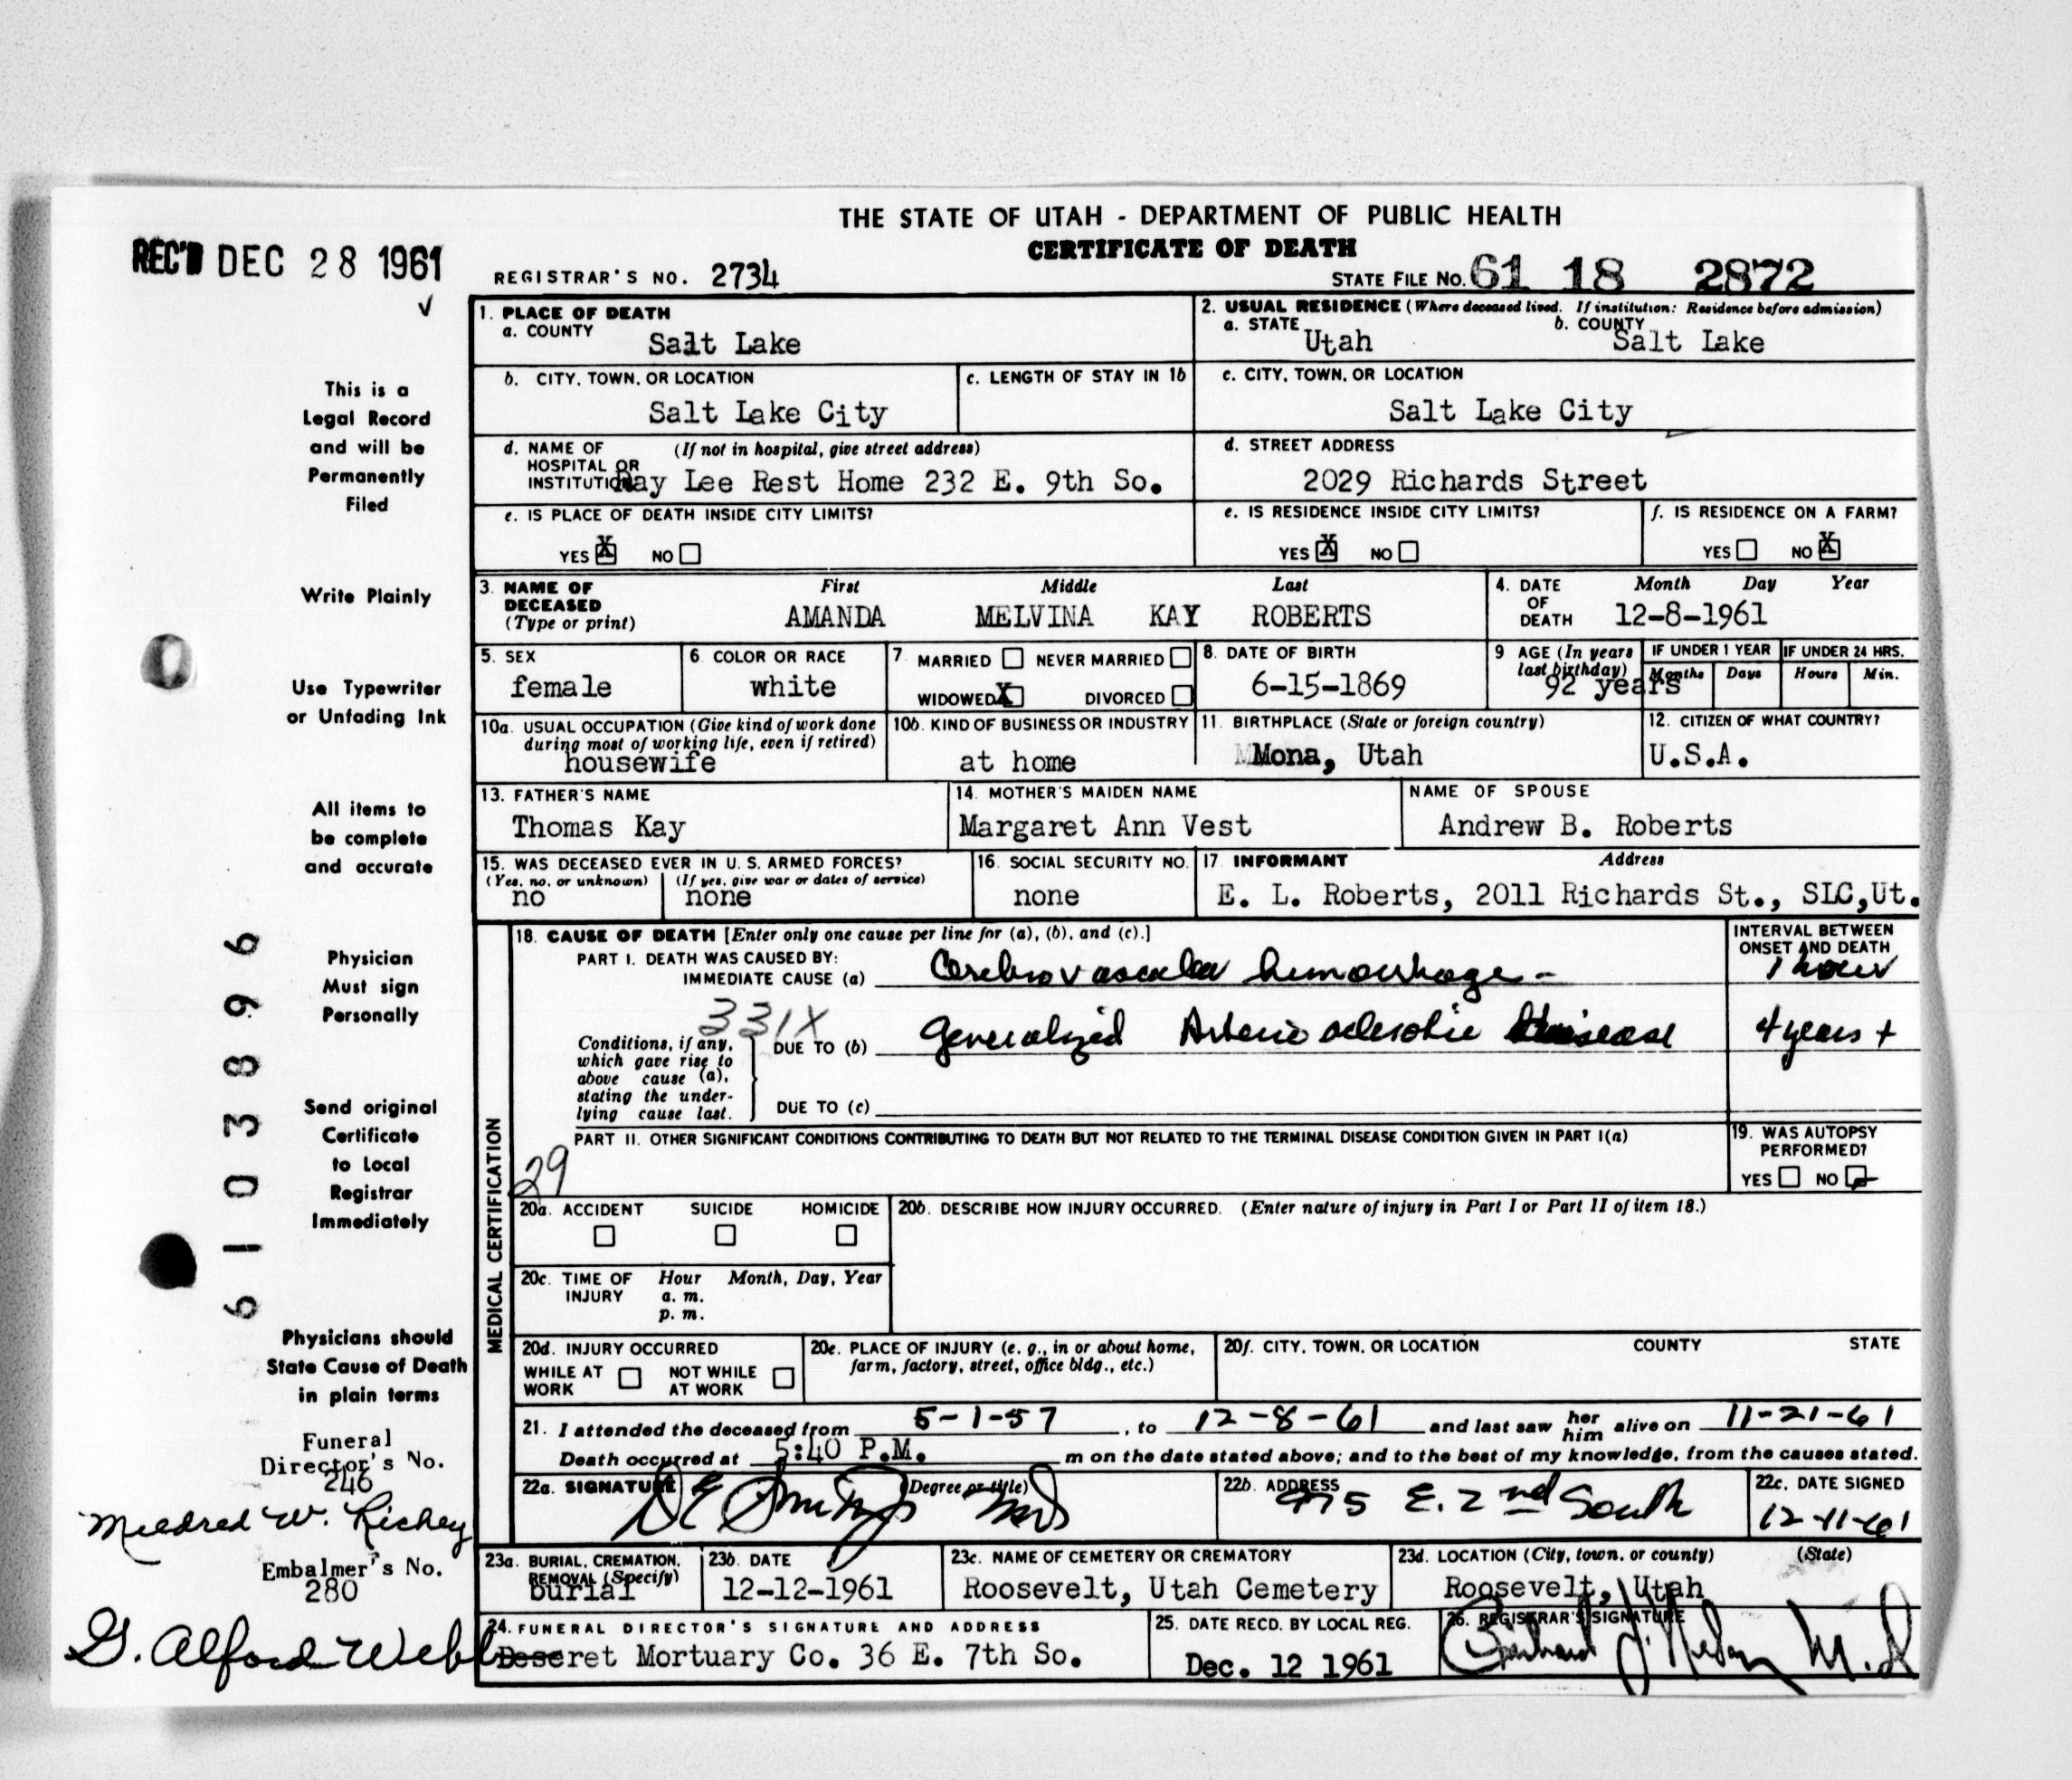 THE STATE OF UTAH - DEPARTMENT OF PUBLIC HEALTH
CERTIFICATE OF DEATH
REC'D DEC 28 1961
REGISTRAR'S NO. 2734
STATE FILE NO. 61 18 2872
1. PLACE OF DEATH
a. COUNTY Salt Lake
2. USUAL RESIDENCE (Where deceased lived. If institution: Residence before admission)
a. STATE Utah b. COUNTY Salt Lake
b. CITY, TOWN, OR LOCATION Salt Lake City
c. LENGTH OF STAY IN 1b
c. CITY, TOWN, OR LOCATION Salt Lake City
d. NAME OF HOSPITAL OR INSTITUTION (If not in hospital, give street address)
Ray Lee Rest Home 232 E. 9th So.
d. STREET ADDRESS
2029 Richards Street
e. IS PLACE OF DEATH INSIDE CITY LIMITS?
YES X NO
e. IS RESIDENCE INSIDE CITY LIMITS?
YES X NO
f. IS RESIDENCE ON A FARM?
YES NO X
3. NAME OF DECEASED (Type or print)
First Middle Last
AMANDA MELVINA KAY ROBERTS
4. DATE OF DEATH Month Day Year
12-8-1961
5. SEX
female
6. COLOR OR RACE
white
7. MARRIED NEVER MARRIED
WIDOWED X DIVORCED
8. DATE OF BIRTH
6-15-1869
9 AGE (In years last birthday)
92 years
IF UNDER 1 YEAR
Months Days
IF UNDER 24 HRS.
Hours Min.
10a. USUAL OCCUPATION (Give kind of work done during most of working life, even if retired)
housewife
10b. KIND OF BUSINESS OR INDUSTRY
at home
11. BIRTHPLACE (State or foreign country)
Mona, Utah
12. CITIZEN OF WHAT COUNTRY?
U.S.A.
13. FATHER'S NAME
Thomas Kay
14. MOTHER'S MAIDEN NAME
Margaret Ann Vest
NAME OF SPOUSE
Andrew B. Roberts
15. WAS DECEASED EVER IN U. S. ARMED FORCES?
(Yes, no, or unknown) (If yes, give war or dates of service)
no none
16. SOCIAL SECURITY NO.
none
17. INFORMANT Address
E. L. Roberts, 2011 Richards St., SLC,Ut.
MEDICAL CERTIFICATION
18. CAUSE OF DEATH [Enter only one cause per line for (a), (b), and (c).]
INTERVAL BETWEEN ONSET AND DEATH
PART I. DEATH WAS CAUSED BY:
IMMEDIATE CAUSE (a) Cerebrovascular hemorrhage - 1 hour
331X
Conditions, if any, which gave rise to above cause (a), stating the underlying cause last.
DUE TO (b) Generalized Arterio sclerotic disease 4 years +
DUE TO (c)
PART II. OTHER SIGNIFICANT CONDITIONS CONTRIBUTING TO DEATH BUT NOT RELATED TO THE TERMINAL DISEASE CONDITION GIVEN IN PART I(a)
29
19. WAS AUTOPSY PERFORMED?
YES NO
20a. ACCIDENT SUICIDE HOMICIDE
20b. DESCRIBE HOW INJURY OCCURRED. (Enter nature of injury in Part I or Part II of item 18.)
20c. TIME OF INJURY Hour Month, Day, Year
a. m.
p. m.
20d. INJURY OCCURRED
WHILE AT WORK NOT WHILE AT WORK
20e. PLACE OF INJURY (e. g., in or about home, farm, factory, street, office bldg., etc.)
20f. CITY, TOWN, OR LOCATION COUNTY STATE
21. I attended the deceased from 5-1-57, to 12-8-61 and last saw her him alive on 11-21-61
Death occurred at 5:40 P.M. m on the date stated above; and to the best of my knowledge, from the causes stated.
22a. SIGNATURE (Degree or title)
MD
22b. ADDRESS
975 E. 2nd South
22c. DATE SIGNED
12-11-61
23a. BURIAL, CREMATION, REMOVAL (Specify)
burial
23b. DATE
12-12-1961
23c. NAME OF CEMETERY OR CREMATORY
Roosevelt, Utah Cemetery
23d. LOCATION (City, town, or county) (State)
Roosevelt, Utah
24. FUNERAL DIRECTOR'S SIGNATURE AND ADDRESS
Deseret Mortuary Co. 36 E. 7th So.
25. DATE RECD. BY LOCAL REG.
Dec. 12 1961
26. REGISTRAR'S SIGNATURE
M.D
This is a
Legal Record
and will be
Permanently
Filed
Write Plainly
Use Typewriter
or Unfading Ink
All items to
be complete
and accurate
Physician
Must sign
Personally
Send original
Certificate
to Local
Registrar
Immediately
Physicians should
State Cause of Death
in plain terms
Funeral
Director's No.
246
Mildred W. Richey
Embalmer's No.
280
G. Alford Webb
6103896